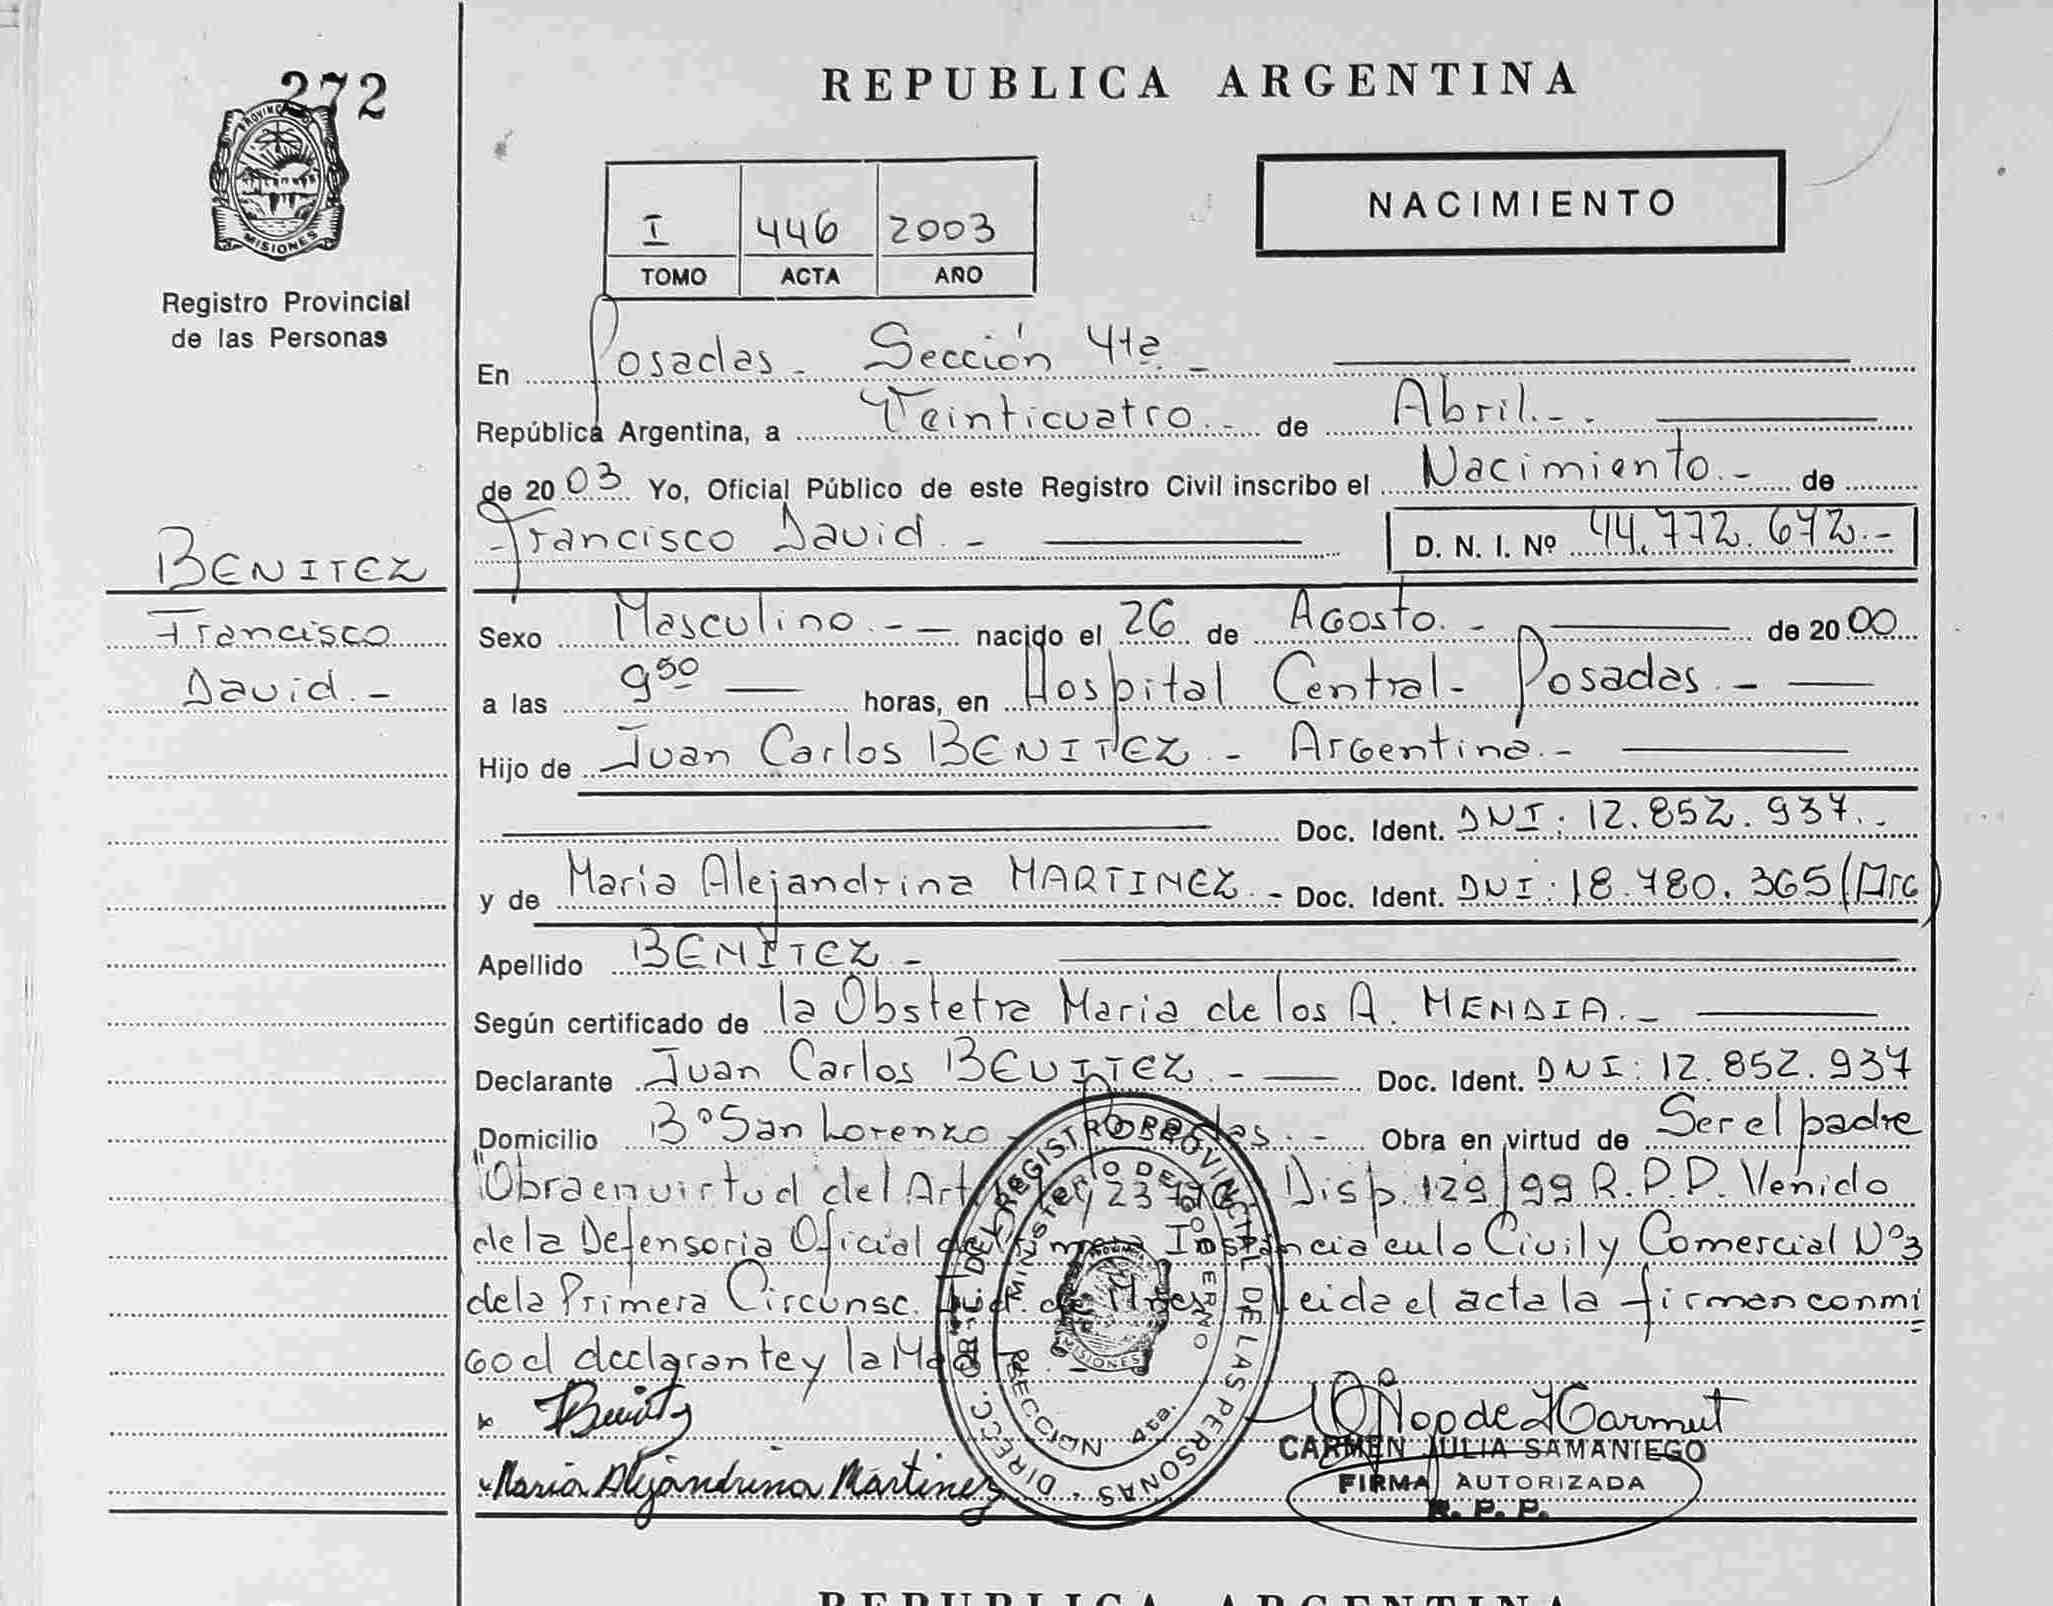 272
PROVINCIA
MISIONES
Registro Provincial
de las Personas
REPUBLICA ARGENTINA
I 446 2003
TOMO ACTA AÑO
NACIMIENTO
En Posadas - Sección 4ta -
República Argentina, a Veinticuatro.- de Abril.-
de 2003 Yo, Oficial Público de este Registro Civil inscribo el Nacimiento.- de
Francisco David.- D. N. I. Nº 44.772.672.-
BENITEZ
Francisco
David.-
Sexo Masculino.- nacido el 26 de Agosto.- de 2000
a las 9 50 horas, en Hospital Central- Posadas.-
Hijo de Juan Carlos BENITEZ.- Argentina.-
Doc. Ident. DNI: 12.852.937.-
y de Maria Alejandrina MARTINEZ.- Doc. Ident. DNI: 18.780.365 (Arg)
Apellido BENITEZ-
Según certificado de la Obstetra Maria de los A. MENDIA.-
Declarante Juan Carlos BENITEZ.- Doc. Ident. DNI: 12.852.937
Domicilio Bº San Lorenzo - Posadas.- Obra en virtud de Ser el padre
"Obra en virtud del Art. Disp. 129/99 R.P.P. Venido
de la Defensoria Oficial de Primera Instancia en lo Civil y Comercial Nº3
de la Primera Circunsc. Jud. de Mnes. Leida el acta la firman conmi
go el declarante y la Madre
Benitez
Maria Alejandrina Martinez
DIRECC. GRAL. DEL REGISTRO PROVINCIAL DE LAS PERSONAS
MINISTERIO DE GOBIERNO
SECCION 4ta.
MISIONES
CARMEN JULIA SAMANIEGO
FIRMA AUTORIZADA
R. P. P.
REPUBLICA ARGENTINA